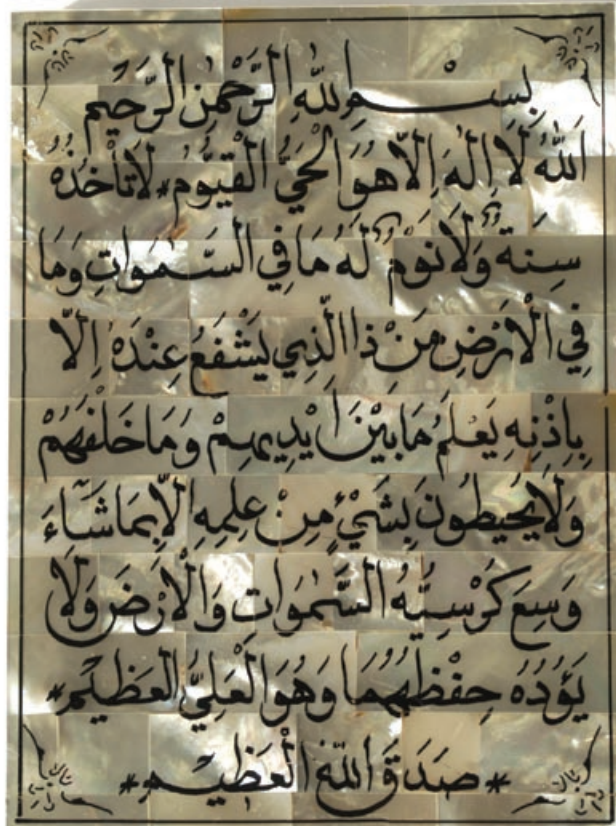 بِسْمِ اللهِ الرَّحْمٰنِ الرَّحِيمِ
اَللهُ لَا اِلٰهَ اِلَّا هُوَ الْحَيُّ الْقَيُّومُ * لَا تَأْخُذُهُ
سِنَةٌ وَلَا نَوْمٌ لَهُ مَا فِي السَّمٰوَاتِ وَمَا
فِي الْاَرْضِ مَنْ ذَا الَّذِي يَشْفَعُ عِنْدَهُ اِلَّا
بِاِذْنِهِ يَعْلَمُ مَا بَيْنَ اَيْدِيهِمْ وَمَا خَلْفَهُمْ
وَلَا يُحِيطُونَ بِشَيْءٍ مِنْ عِلْمِهِ اِلَّا بِمَا شَاءَ
وَسِعَ كُرْسِيُّهُ السَّمٰوَاتِ وَالْاَرْضَ وَلَا
يَؤُدُهُ حِفْظُهُمَا وَهُوَ الْعَلِيُّ الْعَظِيمُ *
* صَدَقَ اللهُ الْعَظِيمُ *